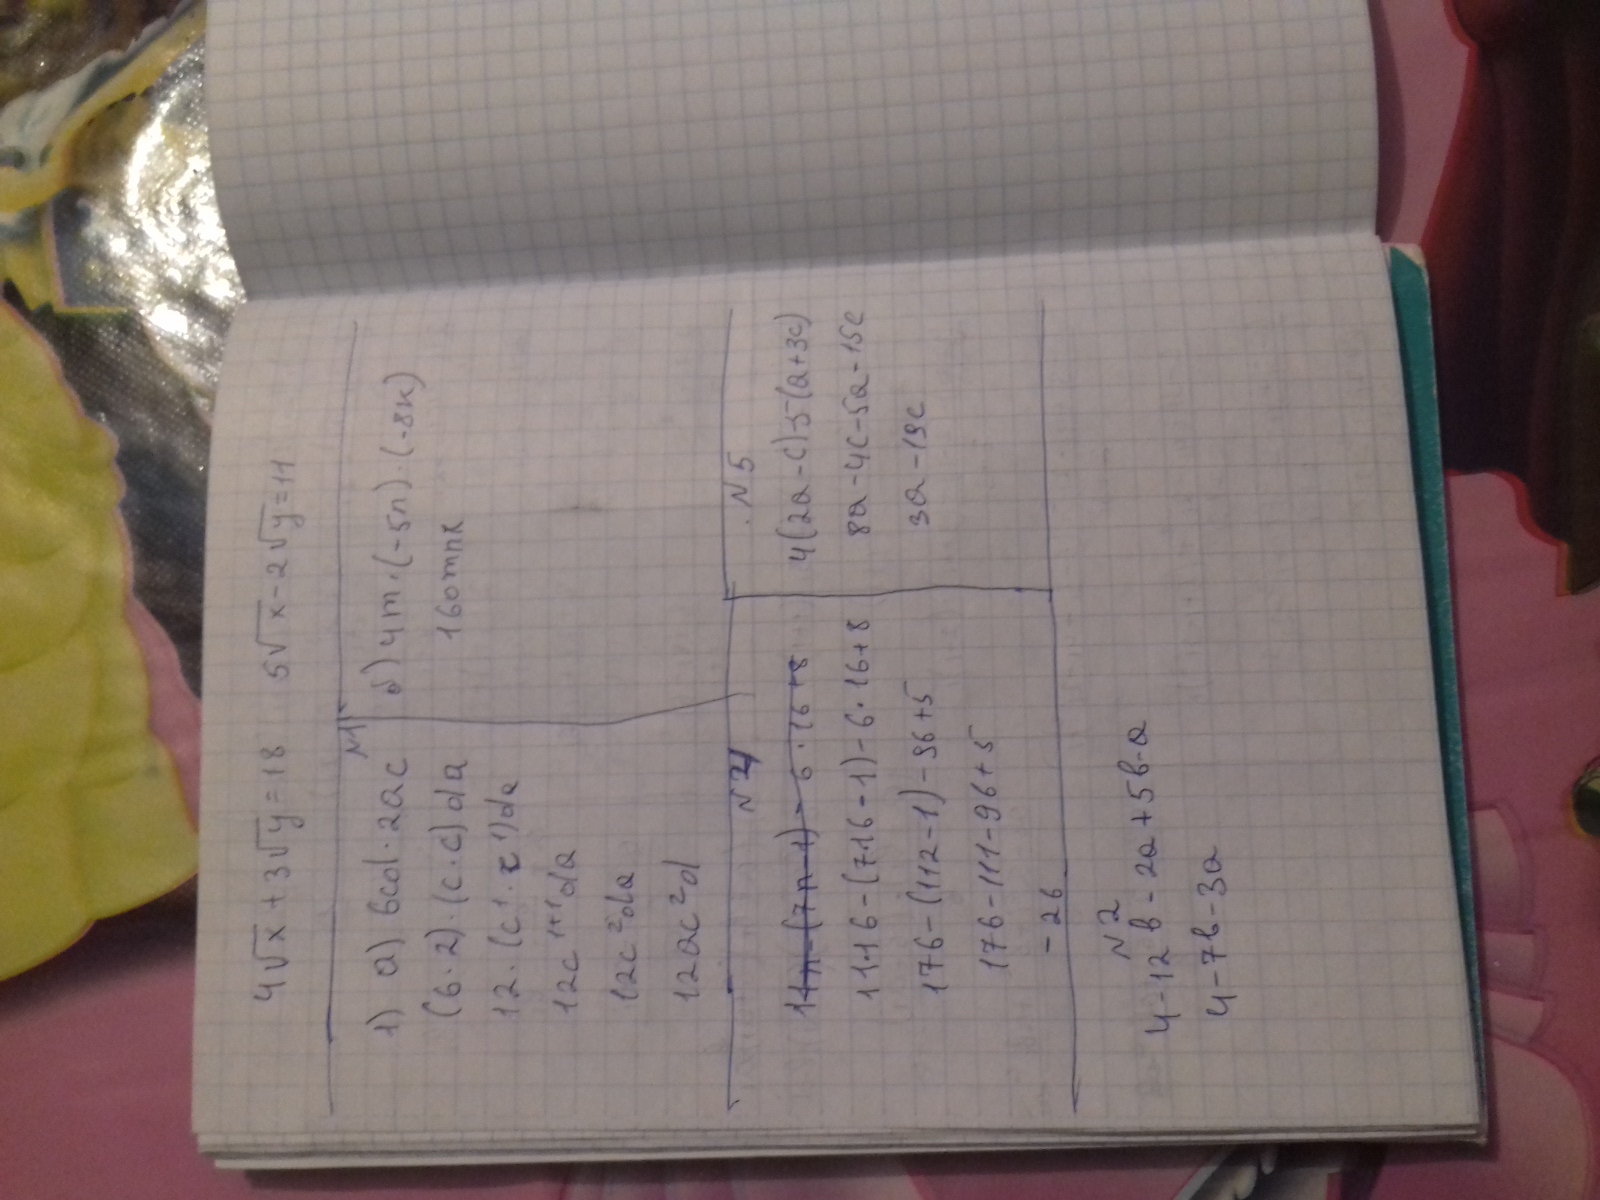 4√x + 3√y = 18   5√x - 2√y = 11
N1
1) а) 6cd · 2ac
(6 · 2) · (c · c) da
12 · (c¹ · c¹) da
12c¹⁺¹da
12c²da
12ac²d
б) 4m · (-5n) · (-8k)
160mnk
N4
11n - (7n - 1) - 6 · 16 + 8
11·16 - (7·16 - 1) - 6 · 16 + 8
176 - (112 - 1) - 96 + 5
176 - 111 - 96 + 5
- 26
N5
4(2a - c) - 5(a + 3c)
8a - 4c - 5a - 15c
3a - 19c
N2
4 - 12b - 2a + 5b - a
4 - 7b - 3a